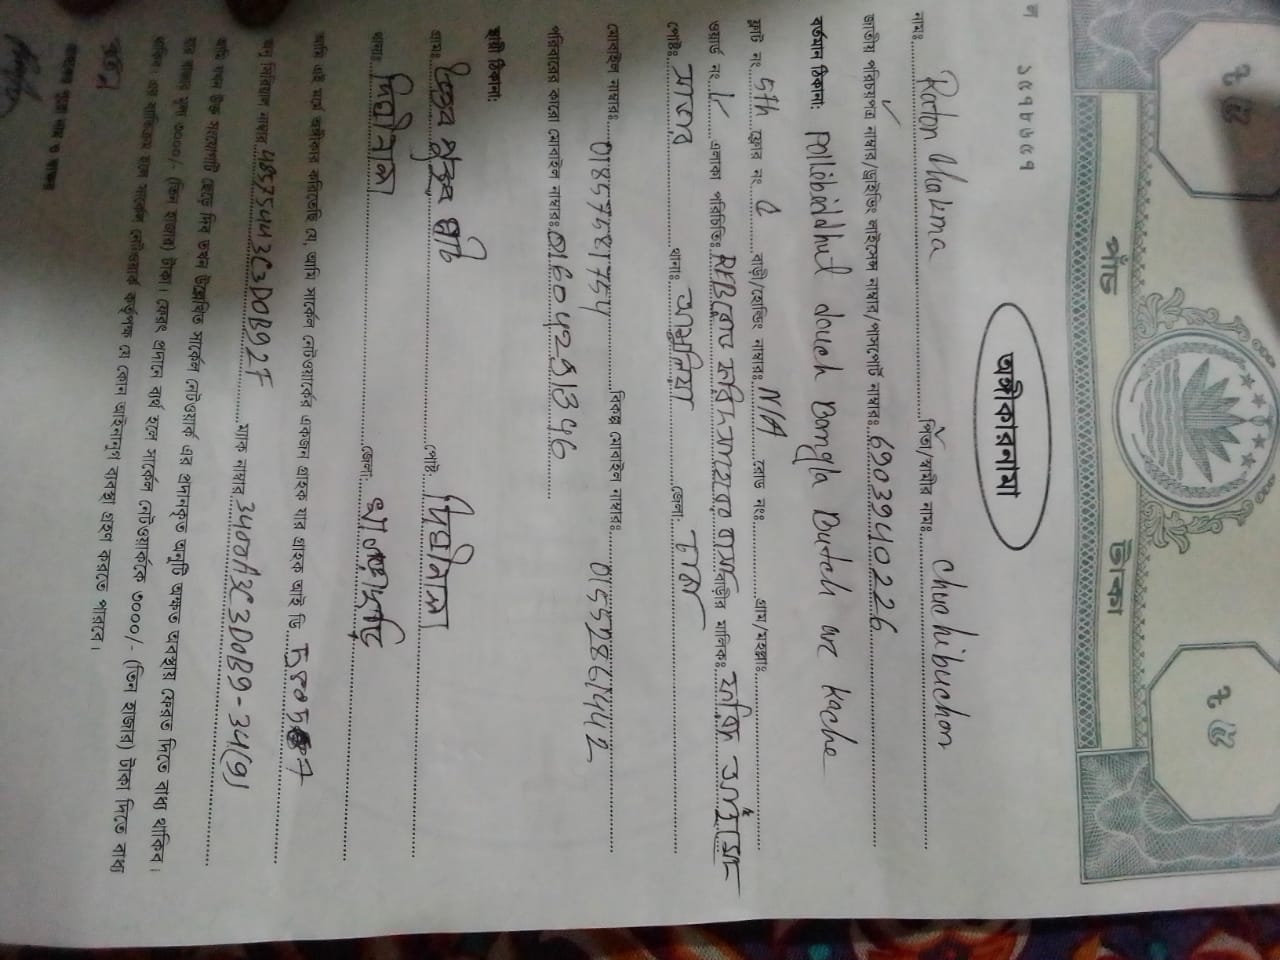 ৳ ৫ ৳ ৫
পাঁচ টাকা
ল ১৫৭৮৬৫৭
অঙ্গীকারনামা
নামঃ Raton Chakma পিতা/স্বামীর নামঃ chuchibuchon
জাতীয় পরিচয়পত্র নাম্বার/ড্রাইভিং লাইসেন্স নাম্বার/পাসপোর্ট নাম্বারঃ 6903940226
বর্তমান ঠিকানা: Pollibiddhut douch Bangla Dutch are kache
ফ্লাট নং 5th ফ্লোর নং বাড়ী/হোল্ডিং নাম্বারঃ N/A রোড নংঃ গ্রাম/মহল্লাঃ
ওয়ার্ড নং এলাকা পরিচিতিঃ বাড়ীর মালিকঃ
পোষ্টঃ সাভার থানাঃ আশুলিয়া জেলা: ঢাকা
মোবাইল নাম্বারঃ বিকল্প মোবাইল নাম্বারঃ 01552861442
পরিবারের কারো মোবাইল নাম্বারঃ
স্থায়ী ঠিকানা:
গ্রামঃ পোষ্ট: দিঘীনালা
থানাঃ দিঘীনালা জেলা: খাগড়াছড়ি
আমি এই মর্মে অঙ্গীকার করিতেছি যে, আমি সার্কেল নেটওয়ার্কের একজন গ্রাহক যার গ্রাহক আই ডি
অনু সিরিয়াল নাম্বার 48575443C3D0B92F ম্যাক নাম্বার 3400A3C3D0B9-34(9)
আমি যখন উক্ত সংযোগটি ছেড়ে দিব তখন উল্লেখিত সার্কেল নেটওয়ার্ক এর প্রদানকৃত অনুটি অক্ষত অবস্থায় ফেরত দিতে বাধ্য থাকিব।
যার বাজার মূল্য ৩০০০/- (তিন হাজার) টাকা। ফেরৎ প্রদানে ব্যর্থ হলে সার্কেল নেটওয়ার্ককে ৩০০০/- (তিন হাজার) টাকা দিতে বাধ্য
থাকিব। এর ব্যতিক্রম হলে সার্কেল নেটওয়ার্ক কর্তৃপক্ষ যে কোন আইনানুগ ব্যবস্থা গ্রহণ করতে পারবে।
গ্রাহকের পুরো নাম ও স্বাক্ষর